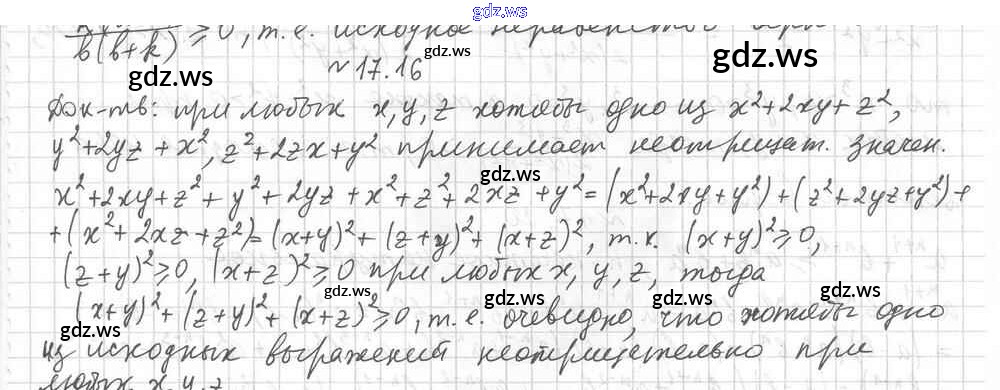 gdz.ws
b(b+k) ≥ 0, т.е. исходное неравенство
gdz.ws gdz.ws gdz.ws
~17.16
Док-ть: при любых x, y, z хотябы одно из x²+2xy+z²,
y²+2yz+x², z²+2zx+y² принимает неотрицат. значен.
gdz.ws
x²+2xy+z²+y²+2yz+x²+z²+2xz+y²=(x²+2xy+y²)+(z²+2yz+y²)+
+(x²+2xz+z²)=(x+y)²+(z+y)²+(x+z)², т.к. (x+y)²≥0,
(z+y)²≥0, (x+z)²≥0 при любых x, y, z, тогда
gdz.ws gdz.ws gdz.ws
(x+y)²+(z+y)²+(x+z)²≥0, т.е. очевидно, что хотябы одно
gdz.ws
из исходных выражений неотрицательно при
gdz.ws gdz.ws
любых x, y, z